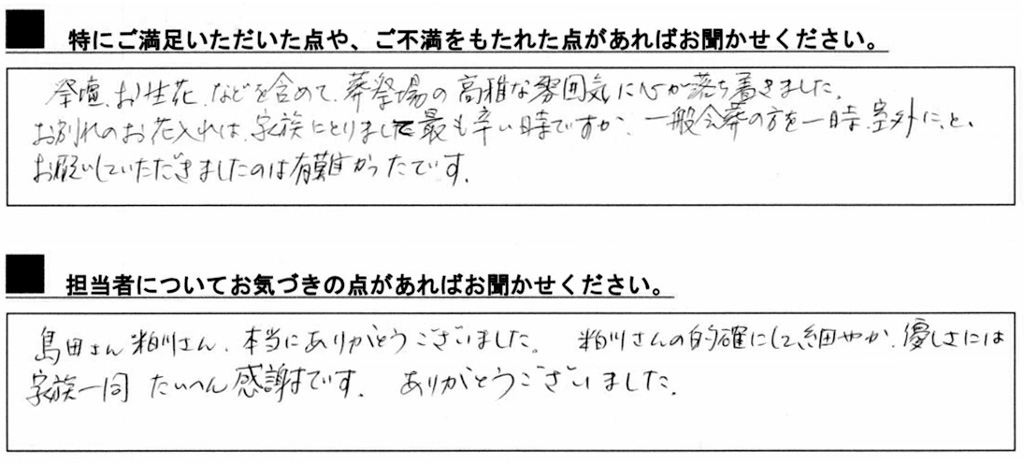 ■ 特にご満足いただいた点や、ご不満をもたれた点があればお聞かせください。
祭壇、お生花、などを含めて、葬祭場の高雅な雰囲気に心が落ち着きました。
お別れのお花入れは、家族にとりまして最も辛い時ですが、一般会葬の方を一時、室外に、と、
お願いしていただきましたのは有難かったです。
■ 担当者についてお気づきの点があればお聞かせください。
島田さん 粕川さん、本当にありがとうございました。 粕川さんの的確にして、細やか、優しさには
家族一同 たいへん感謝です。 ありがとうございました。